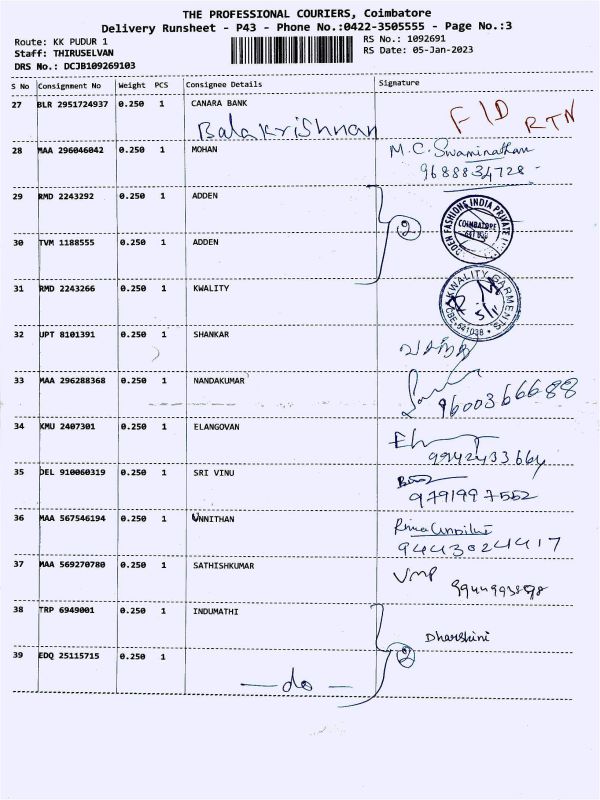 THE PROFESSIONAL COURIERS, Coimbatore
Delivery Runsheet - P43 - Phone No.:0422-3505555 - Page No.:3
Route: KK PUDUR 1
RS No.: 1092691
Staff: THIRUSELVAN
RS Date: 05-Jan-2023
DRS No.: DCJB109269103
S No Consignment No Weight PCS Consignee Details Signature
27 BLR 2951724937 0.250 1 CANARA BANK
Balakrishnan F/D RTN
28 MAA 296046042 0.250 1 MOHAN M.C. Swaminathan
9688834728
29 RMD 2243292 0.250 1 ADDEN
2
FASHIONS INDIA PRIVATE
COIMBATORE
30 TVM 1188555 0.250 1 ADDEN
31 RMD 2243266 0.250 1 KWALITY
KWALITY GARMENTS
CBE-641038
32 UPT 8101391 0.250 1 SHANKAR
33 MAA 296288368 0.250 1 NANDAKUMAR
9600366688
34 KMU 2407301 0.250 1 ELANGOVAN
9942433664
35 DEL 910060319 0.250 1 SRI VINU
9791997552
36 MAA 567546194 0.250 1 UNNITHAN
9443024417
37 MAA 569270780 0.250 1 SATHISHKUMAR
38 TRP 6949001 0.250 1 INDUMATHI
Dharshini
2
39 EDQ 25115715 0.250 1
— do —